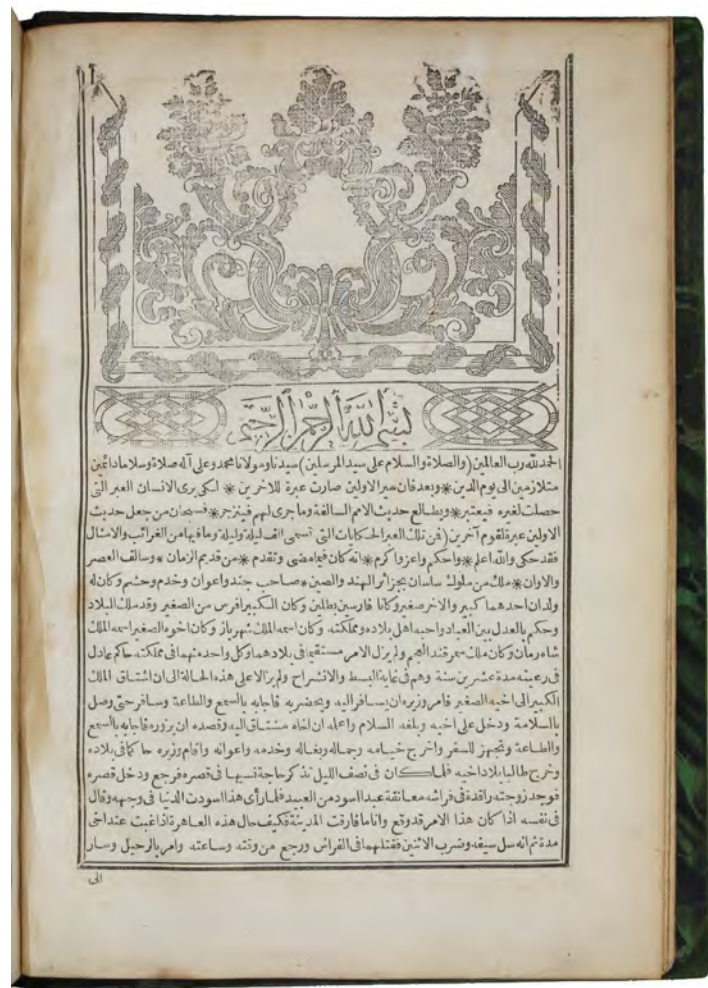 بسم الله الرحمن الرحيم
الحمد لله رب العالمين (والصلاة والسلام على سيد المرسلين) سيدنا ومولانا محمد وعلى آله صلاة وسلاما دائمين
متلازمين الى يوم الدين * وبعد فان سير الاولين صارت عبرة للاخرين * لكى يرى الانسان العبر التى
حصلت لغيره فيعتبر * ويطالع حديث الامم السالفة وما جرى لهم فينزجر * فسبحان من جعل حديث
الاولين عبرة لقوم آخرين (فمن تلك العبر الحكايات التى تسمى الف ليلة وليلة وما فيها من الغرائب والامثال
فقد حكى والله اعلم * واحكم واعز واكرم * انه كان فيما مضى وتقدم * من قديم الزمان * وسالف العصر
والاوان * ملك من ملوك ساسان بجزائر الهند والصين * صاحب جند واعوان وخدم وحشم وكان له
ولدان احدهما كبير والاخر صغير وكانا فارسين بطلين وكان الكبير افرس من الصغير وقد ملك البلاد
وحكم بالعدل بين العباد واحبه اهل بلاده ومملكته وكان اسمه الملك شهر باز وكان اخوه الصغير اسمه الملك
شاه زمان وكان ملك سمرقند العجم ولم يزل الامر مستقيما فى بلادهما وكل واحد منهما فى مملكته حاكم عادل
فى رعيته مدة عشرين سنة وهم فى غاية البسط والانشراح ولم يزالا على هذه الحالة الى ان اشتاق الملك
الكبير الى اخيه الصغير فامر وزيره ان يسافر اليه ويحضر به فاجابه بالسمع والطاعة وسافر حتى وصل
بالسلامة ودخل على اخيه وبلغه السلام واعلمه ان اخاه مشتاق اليه وقصده ان يزوره فاجابه بالسمع
والطاعة وتجهز للسفر واخرج خيامه وجماله وبغاله وخدمه واعوانه واقام وزيره حاكما فى بلاده
وخرج طالبا بلاد اخيه فلما كان فى نصف الليل تذكر حاجة نسيها فى قصره فرجع ودخل قصره
فوجد زوجته راقدة فى فراشه معانقة عبدا اسود من العبيد فلما رأى هذا اسودت الدنيا فى وجهه وقال
فى نفسه اذا كان هذا الامر قد وقع وانا ما فارقت المدينة فكيف حال هذه العاهرة اذا غبت عند اخى
مدة ثم انه سل سيفه وضرب الاثنين فقتلهما فى الفراش ورجع من وقته وساعته وامر بالرحيل وسار
الى